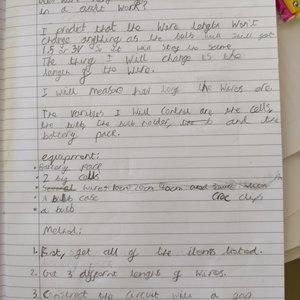 in a circuit work?
I predict that the wire length won't
change anything as the bulb will still get
1.5 or 3V so it will stay the same.
The thing I will change is the
length of the wire.
I will measure how long the wires are.
The variables I will control are the cells,
the bulb, the bulb holder, and the
battery pack.
equipment:
Battery pack
2 big cells
Several wires 20cm 40cm and
A bulb case Croc clips
a bulb
Method:
1. First, get all of the items listed.
2. Get 3 different length of wires.
3. Construct the circuit with a gap